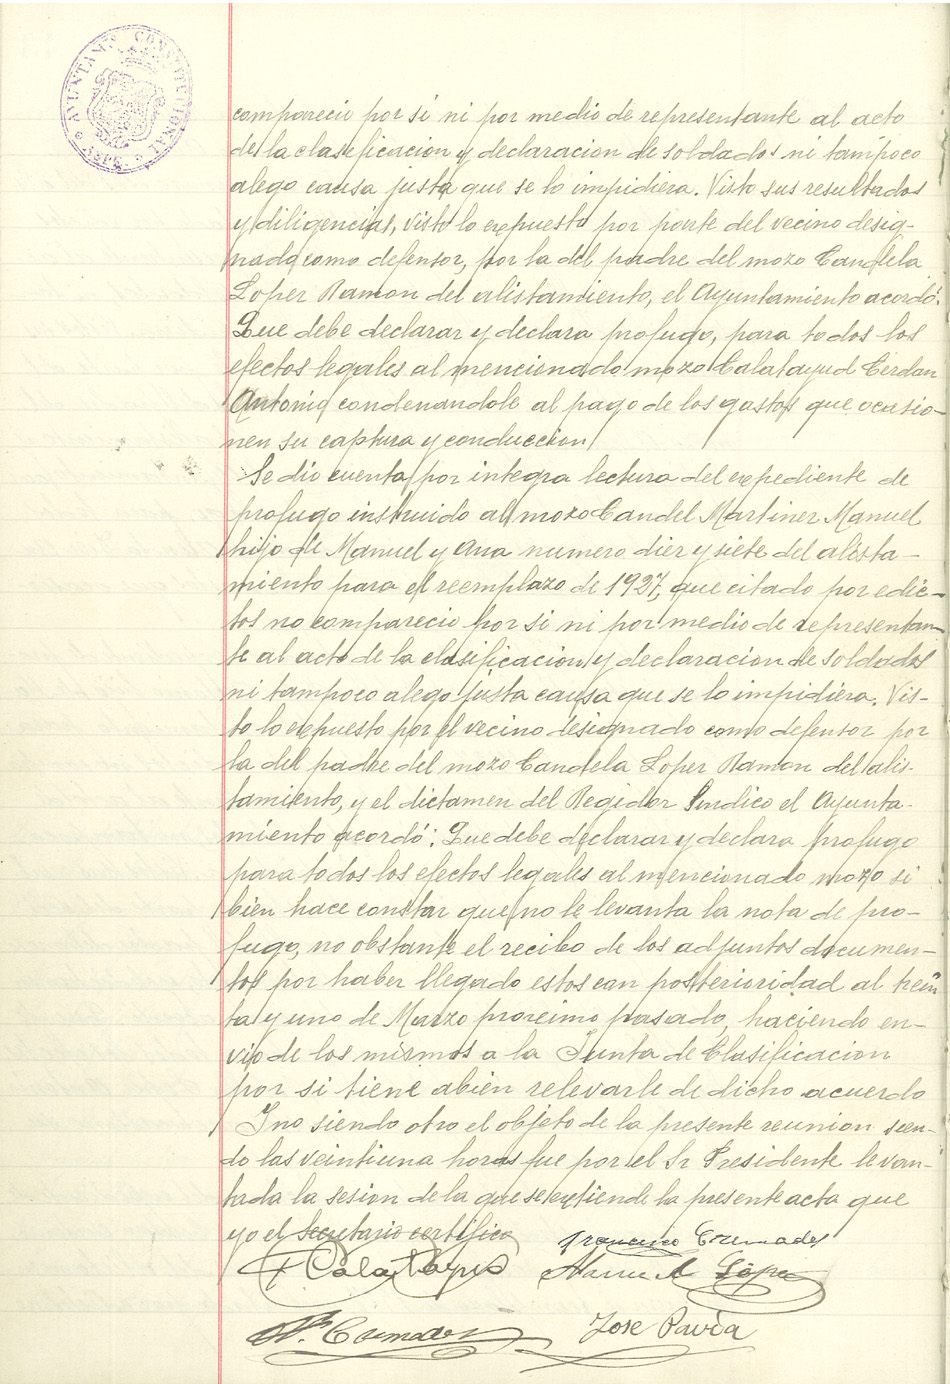 AYUNTAMTO CONSTITUCIONAL
ASPE
comparecio por si ni por medio de representante al acto
de la clasificacion y declaracion de soldados ni tampoco
alego causa justa que se lo impidiera. Visto sus resultados
y diligencias, visto lo expuesto por parte del vecino desig-
nado como defensor, por la del padre del mozo Candela
Lopez Ramon del alistamiento, el Ayuntamiento acordó:
Que debe declarar y declara profugo, para todos los
efectos legales al mencionado mozo Calatayud Cerdan
Antonio condenandole al pago de los gastos que ocasio-
nen su captura y conduccion
Se dio cuenta por integra lectura del expediente de
profugo instruido al mozo Candel Martinez Manuel
hijo de Manuel y Ana numero diez y siete del alista-
miento para el reemplazo de 1927, que citado por edic-
tos no comparecio por si ni por medio de representan-
te al acto de la clasificacion y declaracion de soldados
ni tampoco alego justa causa que se lo impidiera. Vis-
to lo expuesto por el vecino designado como defensor por
la del padre del mozo Candela Lopez Ramon del alis-
tamiento, y el dictamen del Regidor Sindico el Ayunta-
miento acordó: Que debe declarar y declara profugo
para todos los efectos legales al mencionado mozo si
bien hace constar que no le levanta la nota de pro-
fugo, no obstante el recibo de los adjuntos documen-
tos por haber llegado estos con posterioridad al trein
ta y uno de Marzo proximo pasado, haciendo en-
vio de los mismos a la Junta de Clasificacion
por si tiene abien relevarle de dicho acuerdo
Y no siendo otro el objeto de la presente reunion sien-
do las veintiuna horas fue por el Sr Presidente levan-
tada la sesion de la que se extiende la presente acta que
yo el Secretario certifico
Francisco Cremades
Calatayud Manuel López
Cremades Jose Pavía